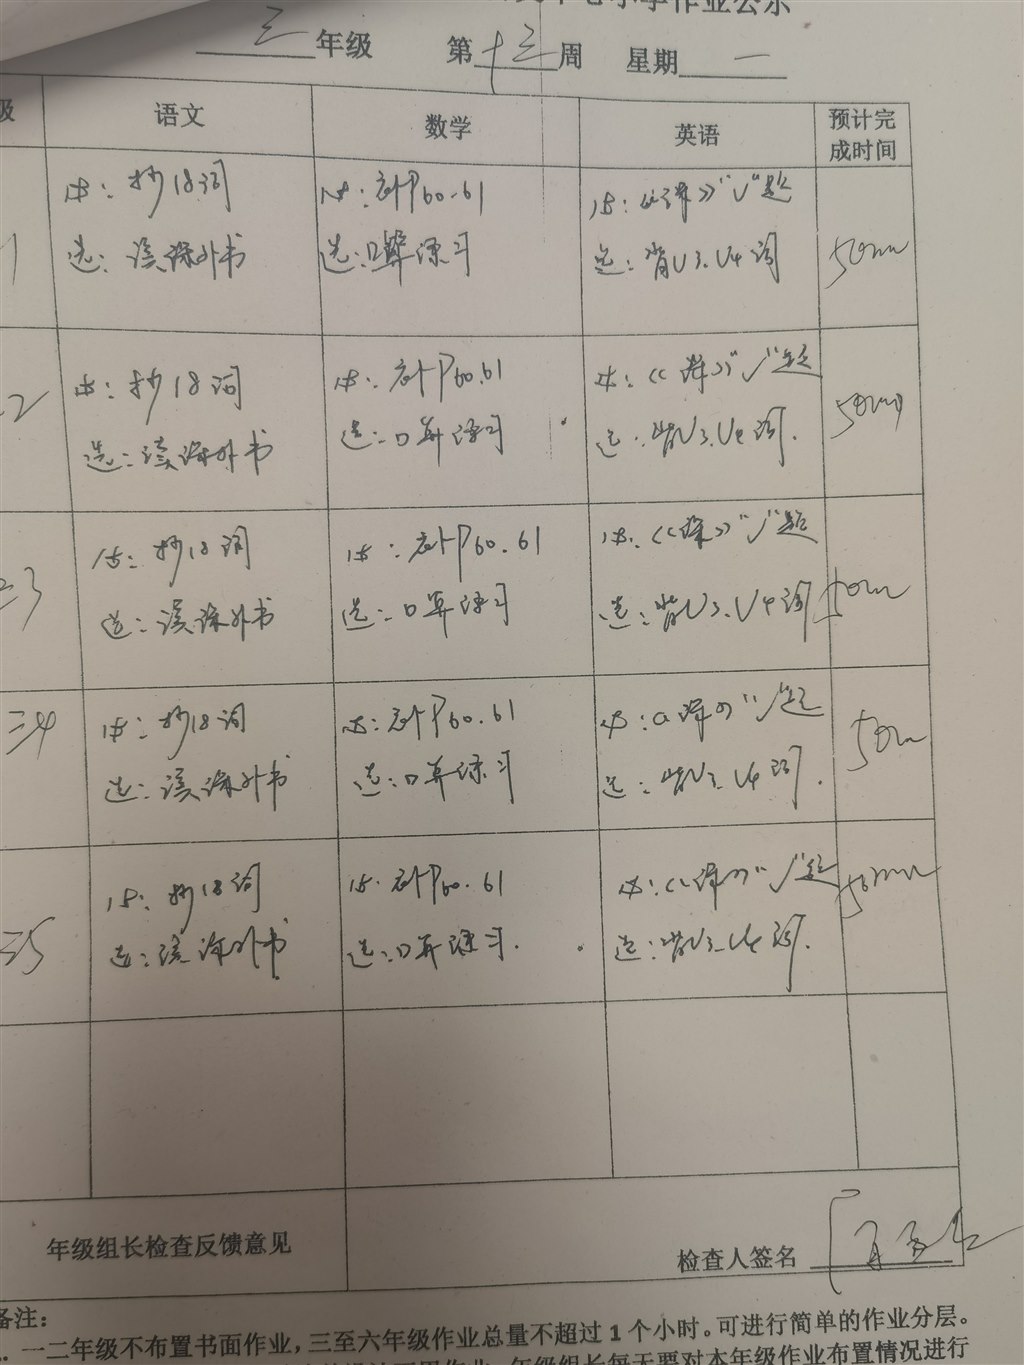 小学作业公示
三年级 第十三周 星期一
级 语文 数学 英语 预计完成时间
1
体：抄18词
选：读课外书
体：计P60.61
选：口算练习
体：《课》"√"题
选：背U3.U4词
50min
2
体：抄18词
选：读课外书
体：计P60.61
选：口算练习
体：《课》"√"题
选：背U3.U4词.
50min
三3
体：抄18词
选：读课外书
体：计P60.61
选：口算练习
体：《课》"√"题
选：背U3.U4词
50min
三4
体：抄18词
选：读课外书
体：计P60.61
选：口算练习
体：《课》"√"题
选：背U3.U4词.
50min
三5
体：抄18词
选：读课外书
体：计P60.61
选：口算练习.
体：《课》"√"题
选：背U3.U4词.
50min
年级组长检查反馈意见
检查人签名
备注：
一二年级不布置书面作业，三至六年级作业总量不超过1个小时。可进行简单的作业分层。
年级组长每天要对本年级作业布置情况进行